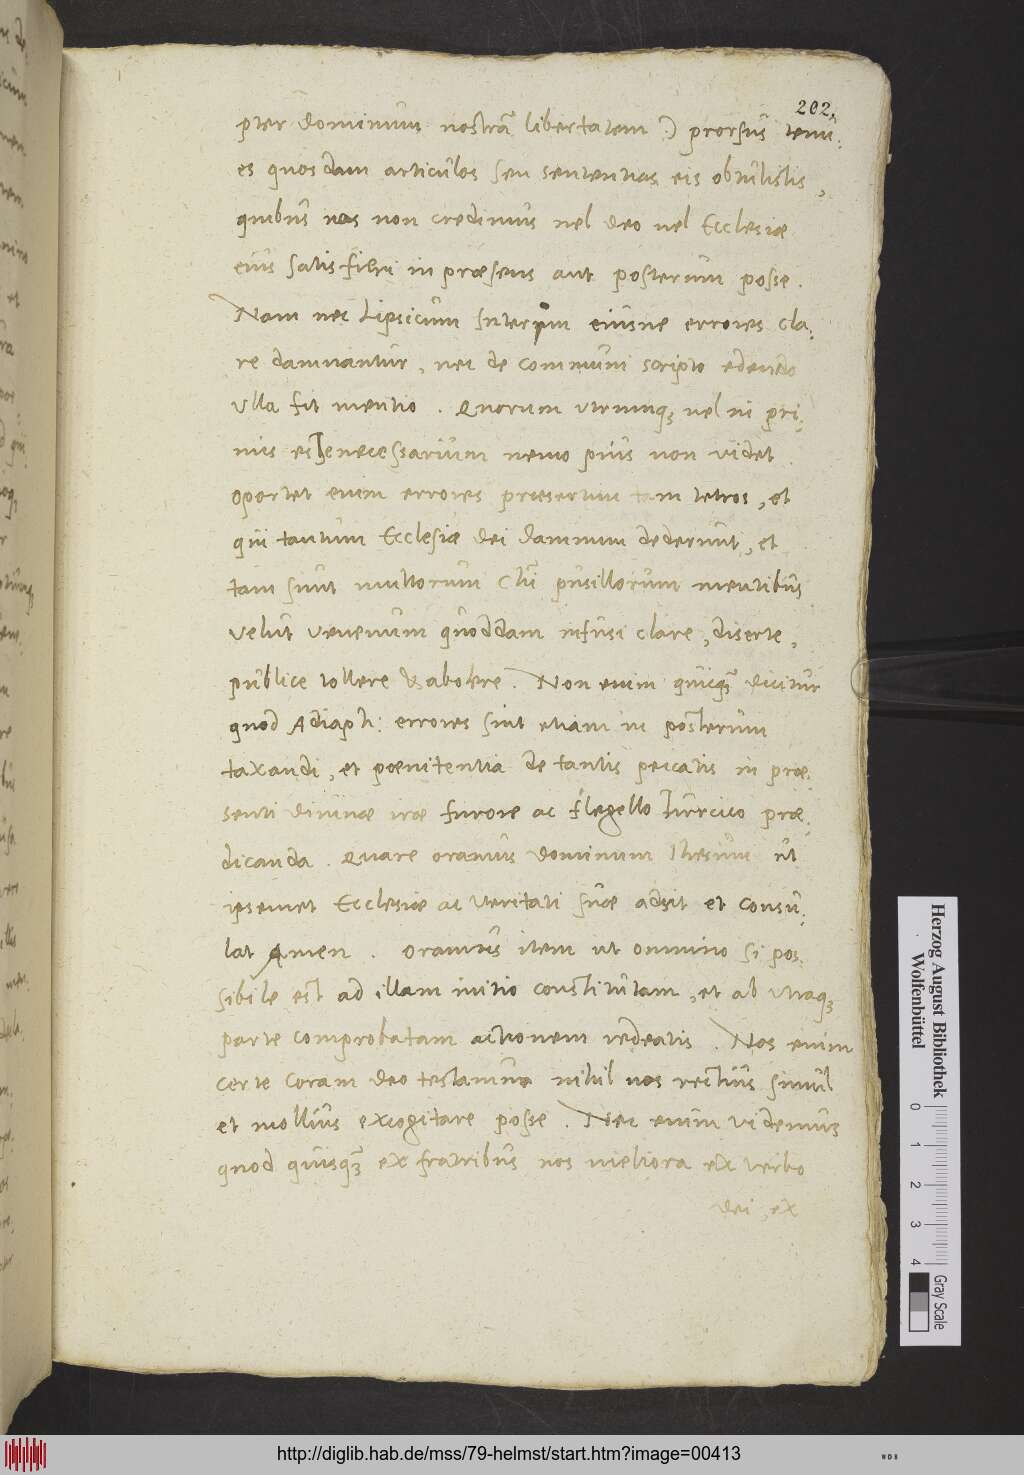 202.
pter dominum nostrã libertatem ?) prorsus tenu-
es quosdam articulos seu sententias eis obtulistis,
quibus nos non credimus vel deo vel Ecclesiæ
eius satisfieri in præsens aut posterum posse.
Nam nec Lipsicum Interim eiusue errores cla-
re damnantur, nec de communi scripto edendo
ulla fit mentio. Quorum utrumqȝ vel in pri-
mis esse necessarium nemo pius non videt
oportet enim errores præsertim tam tetros, et
qui tantum Ecclesiæ dei damnum dederunt, et
tam sunt multorum Chri pusillorum mentibus
velut venenum quoddam infusi clare, diserte,
publice tollere & abolere. Non enim quicqȝ dicitur
quod Adiaph: errores sint etiam in posterum
taxandi, et poenitentia de tantis peccatis in præ-
senti divinæ iræ furore ac flegello Turcico præ-
dicanda. Quare oramus dominum Ihesum ut
ipsemet Ecclesiæ ac veritati suæ adsit et consu-
lat Amen. Oramus item ut omnino si pos-
sibile est ad illam initio constitutam, et ab utraqȝ
parte comprobatam actionem redeatis. Nos enim
certe coram deo testamur nihil nos rectius simul
et mollius excogitare posse. Nec enim videmus
quod quisqȝ ex fratribus nos meliora ex verbo
dei ex
Herzog August Bibliothek
Wolfenbüttel
0 1 2 3 4
Gray Scale
http://diglib.hab.de/mss/79-helmst/start.htm?image=00413
WDB